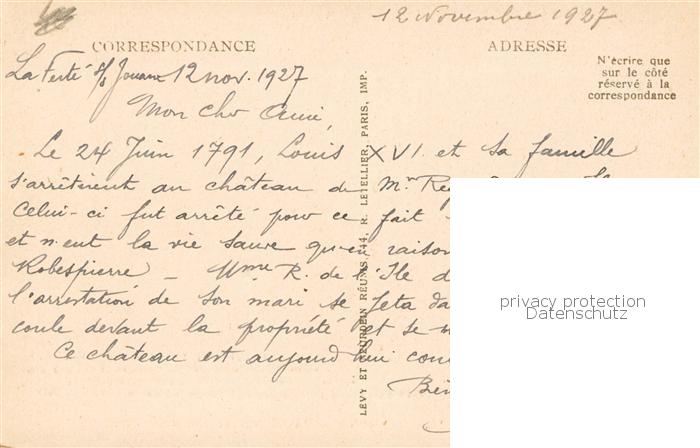 12 Novembre 1927
CORRESPONDANCE
ADRESSE
N'écrire que
sur le côté
réservé à la
correspondance
La Ferté s/s Jouarre 12 nov. 1927
Mon cher Ami,
Le 24 Juin 1791, Louis XVI. et sa famille
s'arrêtèrent au château de Mr Reg
Celui-ci fut arrêté pour ce fait
et n'eut la vie sauve qu'en raison
Robespierre — Mme R. de l'Ile d
l'arrestation de son mari se jeta da
coule devant la propriété et se n
Ce château est aujourd'hui con
Bén
LÉVY ET NEURDEIN RÉUNIS, 44, R. LETELLIER, PARIS, IMP.
privacy protection
Datenschutz